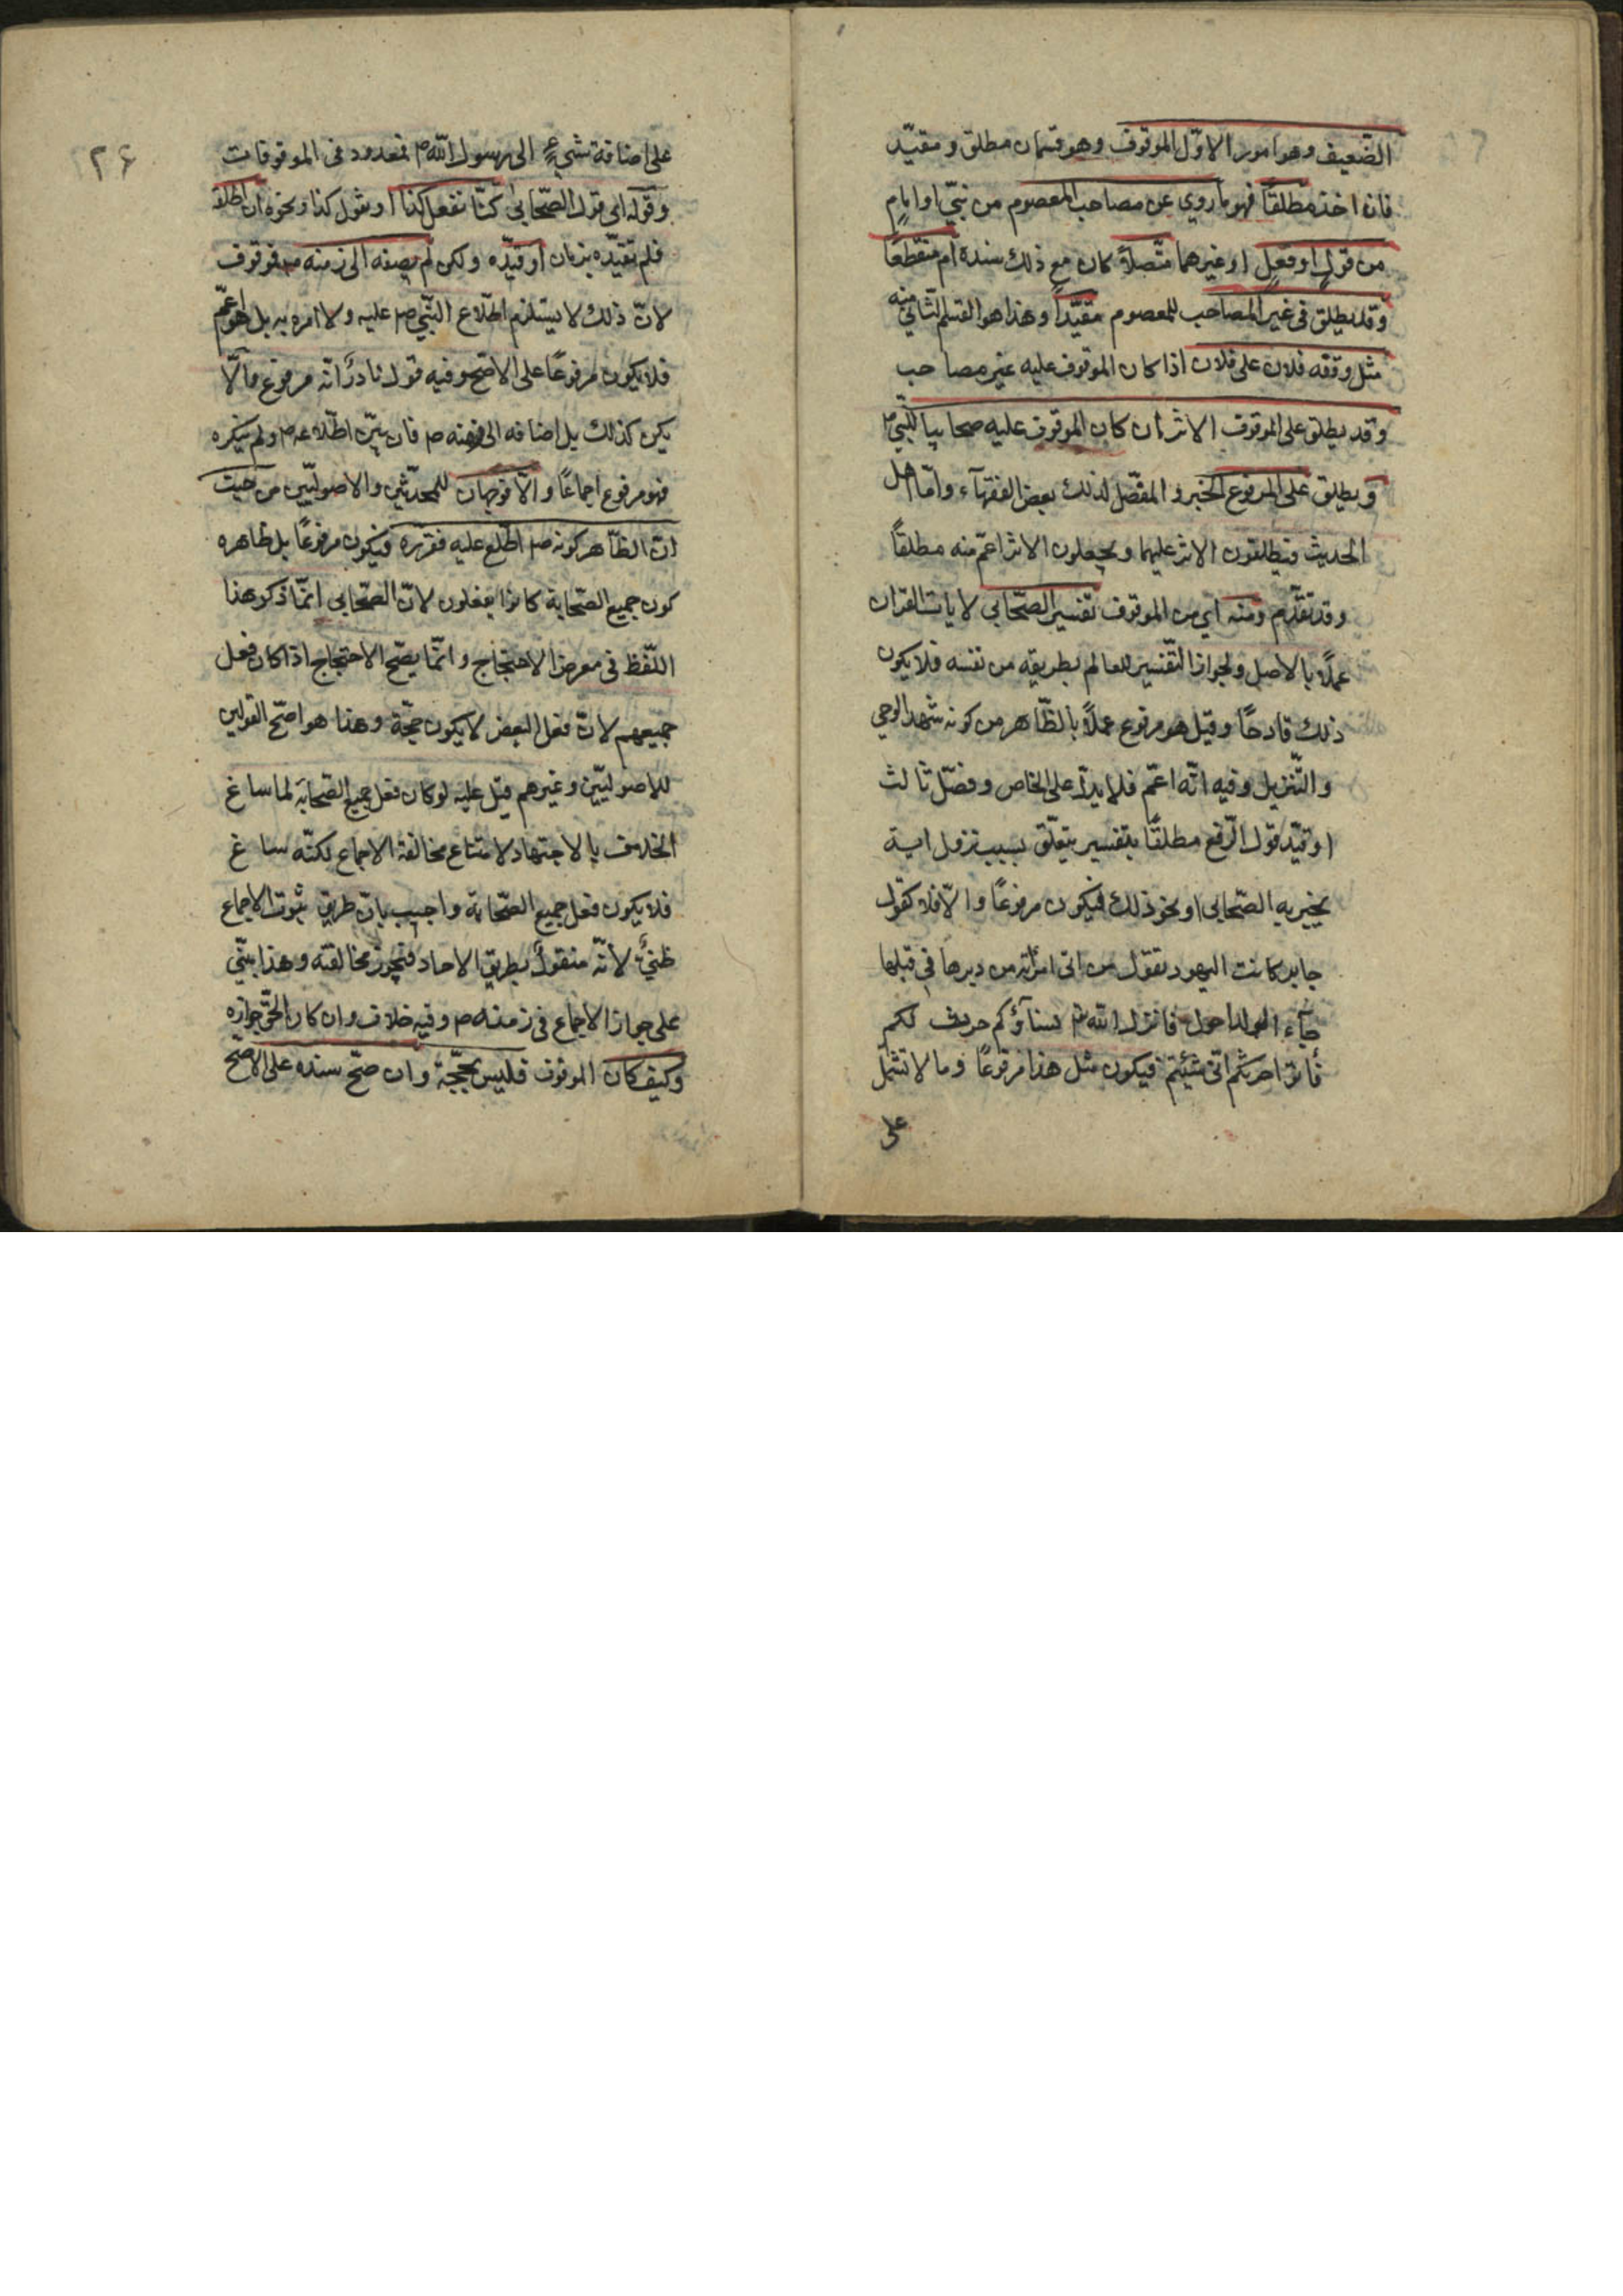 الضّعيف وهو امور الاوّل الموقوف وهو قسمان مطلق ومقيّد
فان اخذ مطلقاً فهو ما روي عن مصاحب المعصوم من نبيّ او امام
من قولٍ او فعلٍ او غيرهما متّصلاً كان مع ذلك سنده ام منقطعاً
وقد يطلق في غير المصاحب للمعصوم مقيّداً وهذا هو القسم الثاني منه
مثل وقفه فلان على فلان اذا كان الموقوف عليه غير مصاحب
وقد يطلق على الموقوف الاثر ان كان الموقوف عليه صحابيا للنّبي ص
ويطلق على المرفوع الخبر والمفصّل لذلك بعض الفقهآء وامّا اهل
الحديث فيطلقون الاثر عليهما ويجعلون الاثر اعمّ منه مطلقاً
وقد تقدّم ومنه اي من الموقوف تفسير الصّحابي لايات القران
عملاً بالاصل ولجواز التّفسير للعالم بطريقه من نفسه فلا يكون
ذلك قادحًا وقيل هو مرفوع عملاً بالظّاهر من كونه شهد الوحي
والتّنزيل وفيه انّه اعمّ فلا يدلّ على الخاص وفصّل ثالث
او قيّد قول الرّفع مطلقًا بتفسير يتعلّق بسبب نزول اية
يخبر به الصّحابي او نحو ذلك فيكون مرفوعًا والّا فلا كقول
جابر كانت اليهود تقول من اتى امرأته من دبرها في قبلها
جآء الولد احول فانزل الله تع نسآؤكم حرث لكم
فأتوا حرثكم انّى شئتم فيكون مثل هذا مرفوعًا وما لا تشمل
على
۲۶
على اضافة شيءٍ الى رسول الله ص فمعدود في الموقوفات
وقوله اي قول الصّحابي كنّا نفعل كذا او نقول كذا ونحوه ان اطلقه
فلم يقيّده بزمان او قيّده ولكن لم يضفه الى زمنه ص فموقوف
لانّ ذلك لا يستلزم اطّلاع النّبي ص عليه ولا امره به بل هو اعمّ
فلا يكون مرفوعًا على الاصح وفيه قول نادر انّه مرفوع والّا
يكن كذلك بل اضافه الى زمنه ص فان بيّن اطّلاعه ص ولم ينكره
فهو مرفوع اجماعًا والّا فوجهان للمحدّثين والاصوليّين من حيث
انّ الظّاهر كونه ص اطّلع عليه فقرّره فيكون مرفوعًا بل ظاهره
كون جميع الصّحابة كانوا يفعلون لانّ الصّحابي انّما ذكر هذا
اللّفظ في معرض الاحتجاج وانّما يصّح الاحتجاج اذا كان فعل
جميعهم لانّ فعل البعض لا يكون حجّة وهذا هو اصّح القولين
للاصوليّين وغيرهم قيل عليه لو كان فعل جميع الصّحابة لما ساغ
الخلاف بالاجتهاد لامتناع مخالفة الاجماع لكنّه ساغ
فلا يكون فعل جميع الصّحابة واجيب بانّ طريق ثبوت الاجماع
ظنيٌّ لأنّه منقولٌ بطريق الاحاد فيجوز مخالفته وهذا يبنى
على جواز الاجماع في زمنه ص وفيه خلاف وان كان الحقّ جوازه
وكيف كان الموقوف فليس بحجّة وان صحّ سنده على الاصحّ